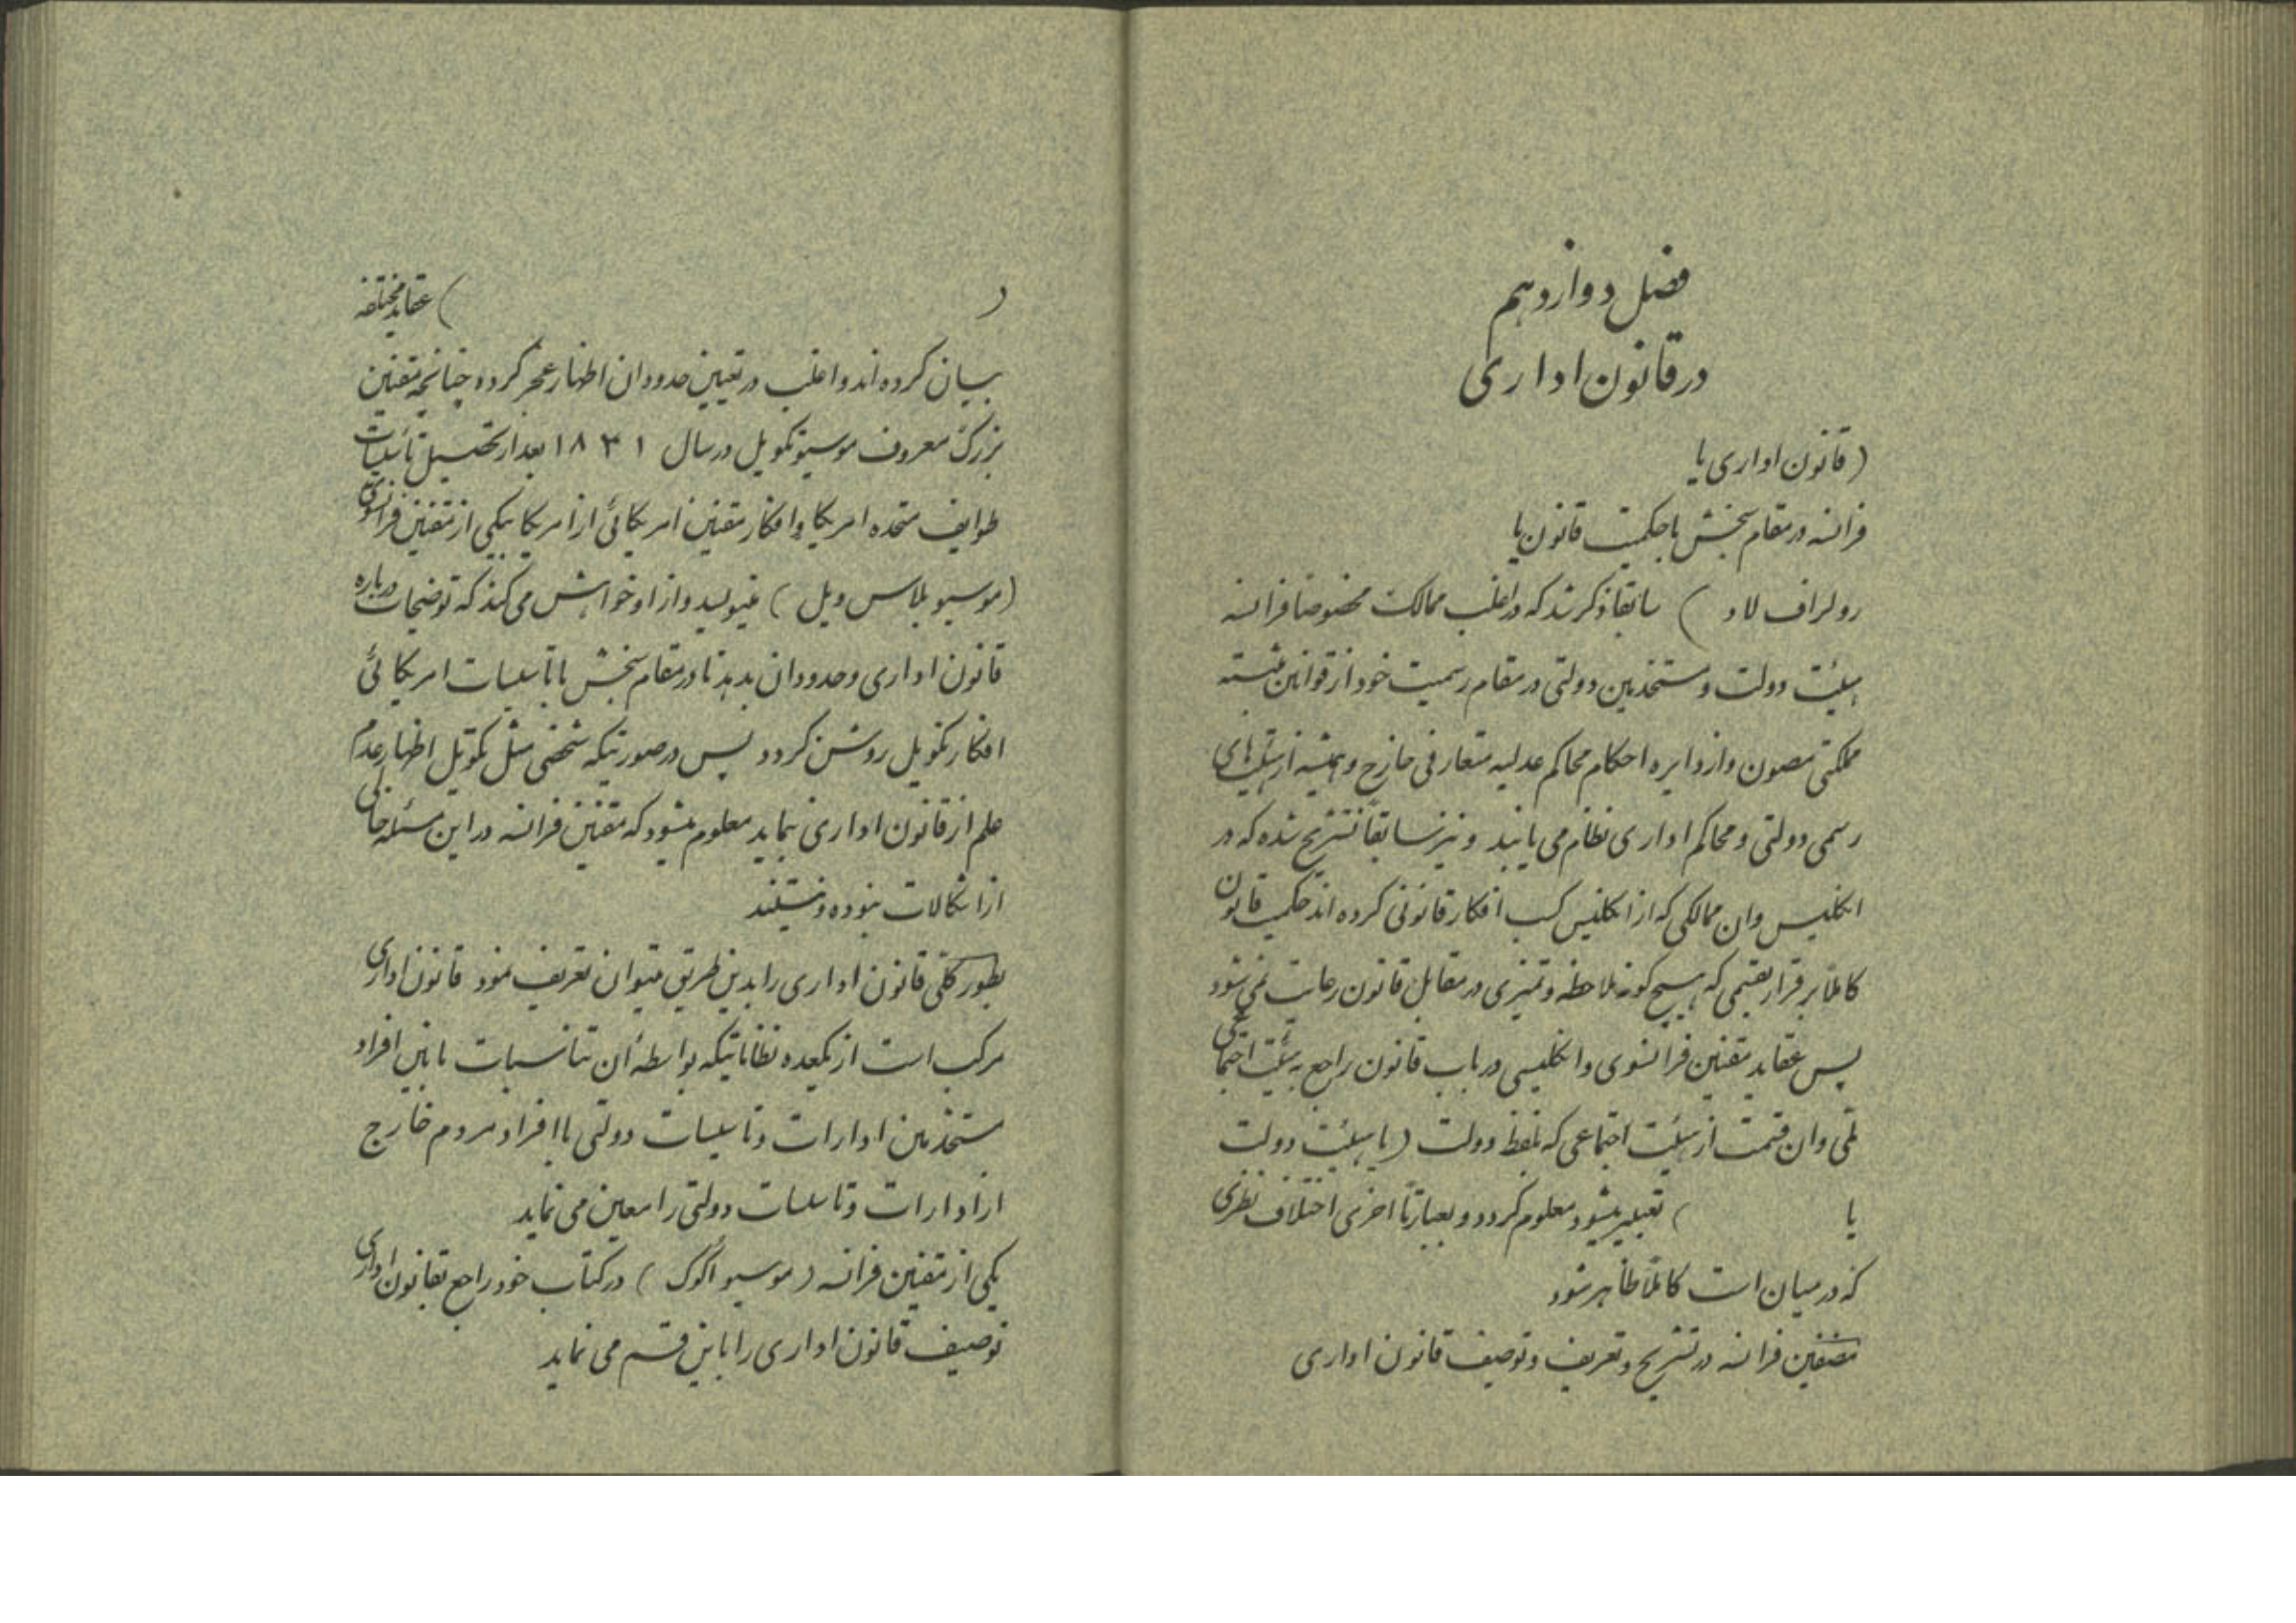 فصل دوازدهم
در قانون اداری
(قانون اداری یا
فرانسه در مقام سنجش با حکمیت قانون یا
رولراف لاد ) سابقا ذکر شد که در اغلب ممالک مخصوصا فرانسه
هیئت دولت و مستخدمین دولتی در مقام رسمیت خود از قوانین مثبته
مملکتی مصون و از دایره احکام محاکم عدلیه متعارفی خارج و همیشه از هیئتهای
رسمی دولتی و محاکم اداری نظام می یابند و نیز سابقاً تشریح شده که در
انگلیس و ان ممالکی که از انگلیس کسب افکار قانونی کرده اند حکمیت قانون
کاملاً برقرار بقسمی که هیچ گونه ملاحظه و تمیزی در مقابل قانون رعایت نمی شود
پس عقاید مقننین فرانسوی و انگلیسی در باب قانون راجع به هیئت اجتماعی
ملی و ان قسمت از هیئت اجتماعی که بلفظ دولت (یا هیئت دولت
یا ) تعبیر میشود معلوم گردد و بعبارتاً اخری اختلاف نظری
که در میان است کاملاً ظاهر شود
مصنفین فرانسه در تشریح و تعریف و توصیف قانون اداری
( ) عقاید مختلفه
بیان کرده اند و اغلب در تعیین حدود ان اظهار عجز کرده چنانچه مقنین
بزرگ معروف موسیو تکویل در سال ۱۸۳۱ بعد از تحصیل تأسیسات
طوایف متحده امریکا و افکار مقنین امریکائی از امریکا بیکی از مقنین فرانسوی
(موسیو بلاس ویل ) مینویسد و از او خواهش می کند که توضیحات درباره
قانون اداری و حدود ان بدهد تا در مقام سنجش با تأسیسات امریکائی
افکار تکویل روشن گردد پس در صورتیکه شخصی مثل تکویل اظهار عدم
علم از قانون اداری نماید معلوم میشود که مقنین فرانسه در این مسئله خالی
از اشکالات نبوده و نیستند
بطور کلی قانون اداری را بدین طریق میتوان تعریف نمود قانون اداری
مرکب است از یکعده نظاماتیکه بواسطه ان تناسبات مابین افراد
مستخدمین ادارات و تأسیسات دولتی با افراد مردم خارج
از ادارات و تأسیسات دولتی را معین می نماید
یکی از مقنین فرانسه (موسیو اگوک ) در کتاب خود راجع بقانون اداری
توصیف قانون اداری را باین قسم می نماید